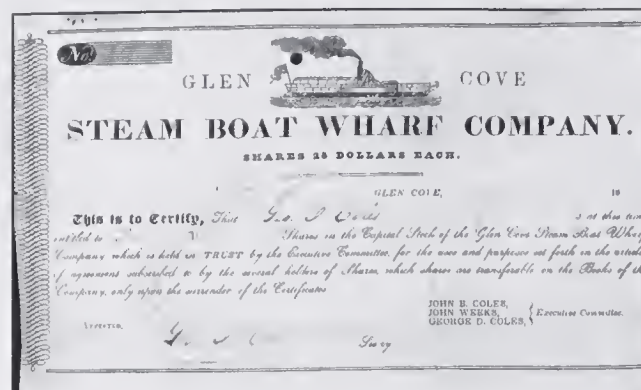 No.
GLEN COVE
STEAM BOAT WHARF COMPANY.
SHARES 25 DOLLARS EACH.
GLEN COVE, 18
This is to Certify, That Geo. is at this time
entitled to Shares in the Capital Stock of the Glen Cove Steam Boat Wharf
Company which is held in TRUST by the Executive Committee, for the uses and purposes set forth in the articles
of agreement subscribed to by the several holders of Shares, which shares are transferable on the Books of the
Company, only upon the surrender of the Certificates
JOHN B. COLES,
JOHN WEEKS, Executive Committee.
GEORGE D. COLES,
Secry